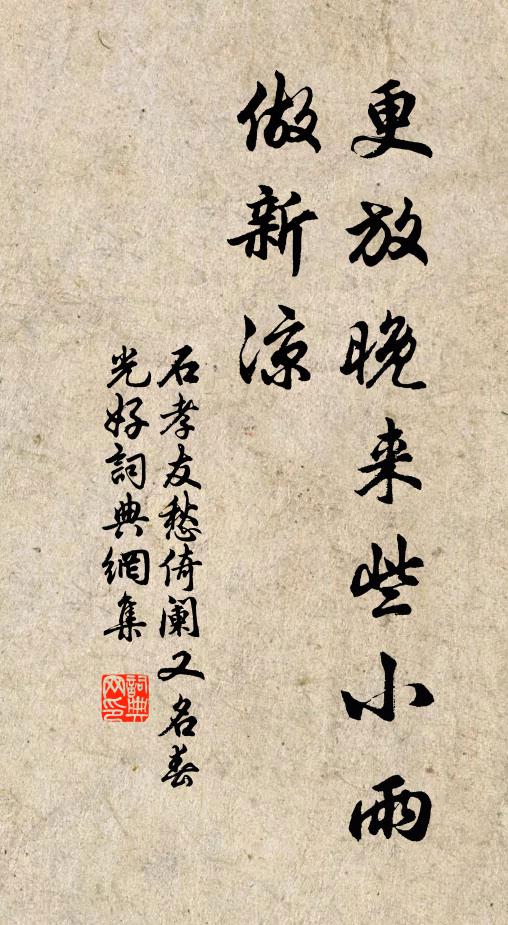 更放晚来些小雨
做新凉
石孝友愁倚阑又名春
光好詞典網集
詞典
网印